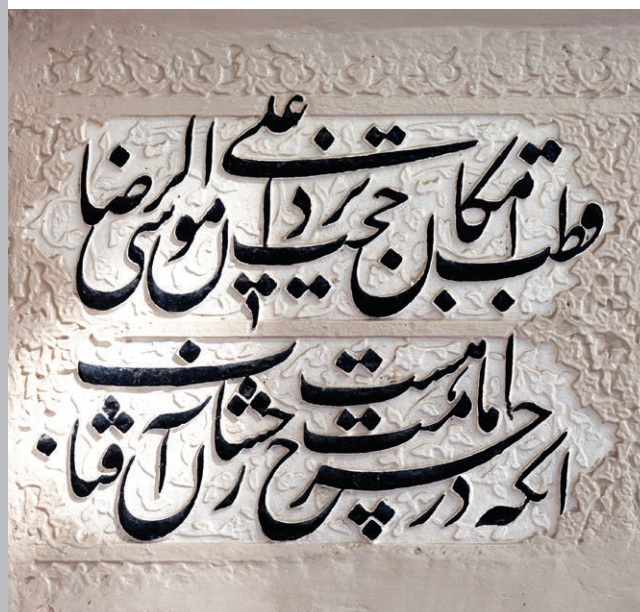 قطب امکان حجت یزدان علی موسی الرضا
آنکه در چرخ امامت هست رخشان آفتاب